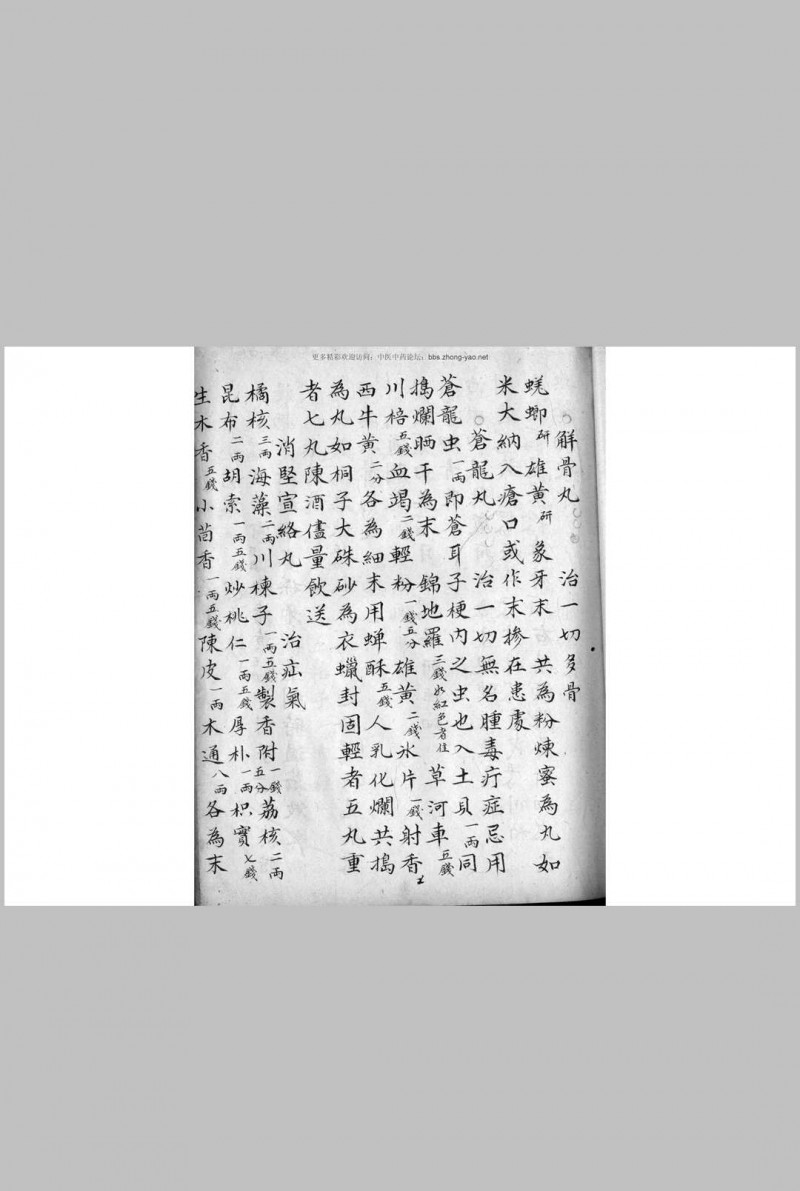 更多精彩欢迎访问：中医中药论坛：bbs.zhong-yao.net
解骨丸 治一切多骨
蜣螂研 雄黃研 象牙末 共為粉煉蜜為丸如
米大納入瘡口或作末摻在患處
蒼龍丸 治一切無名腫毒疔症忌用
蒼龍虫一兩即蒼耳子梗內之虫也入土貝一兩同
搗爛晒干為末 錦地羅三錢如紅色者佳 草河車五錢
川棓五錢血竭二錢輕粉一錢五分雄黃二錢氷片一錢射香
西牛黃二分各為細末用蟬酥五錢人乳化爛共搗
為丸如桐子大硃砂為衣蠟封固輕者五丸重
者七丸陳酒儘量飲送
消堅宣絡丸 治疝氣
橘核三兩海藻二兩川楝子一兩五錢製香附一錢五分荔核二兩
昆布二兩胡索一兩五錢炒桃仁一兩五錢厚朴一兩枳實七錢
生木香五錢小茴香一兩五錢陳皮一兩木通八兩各為末